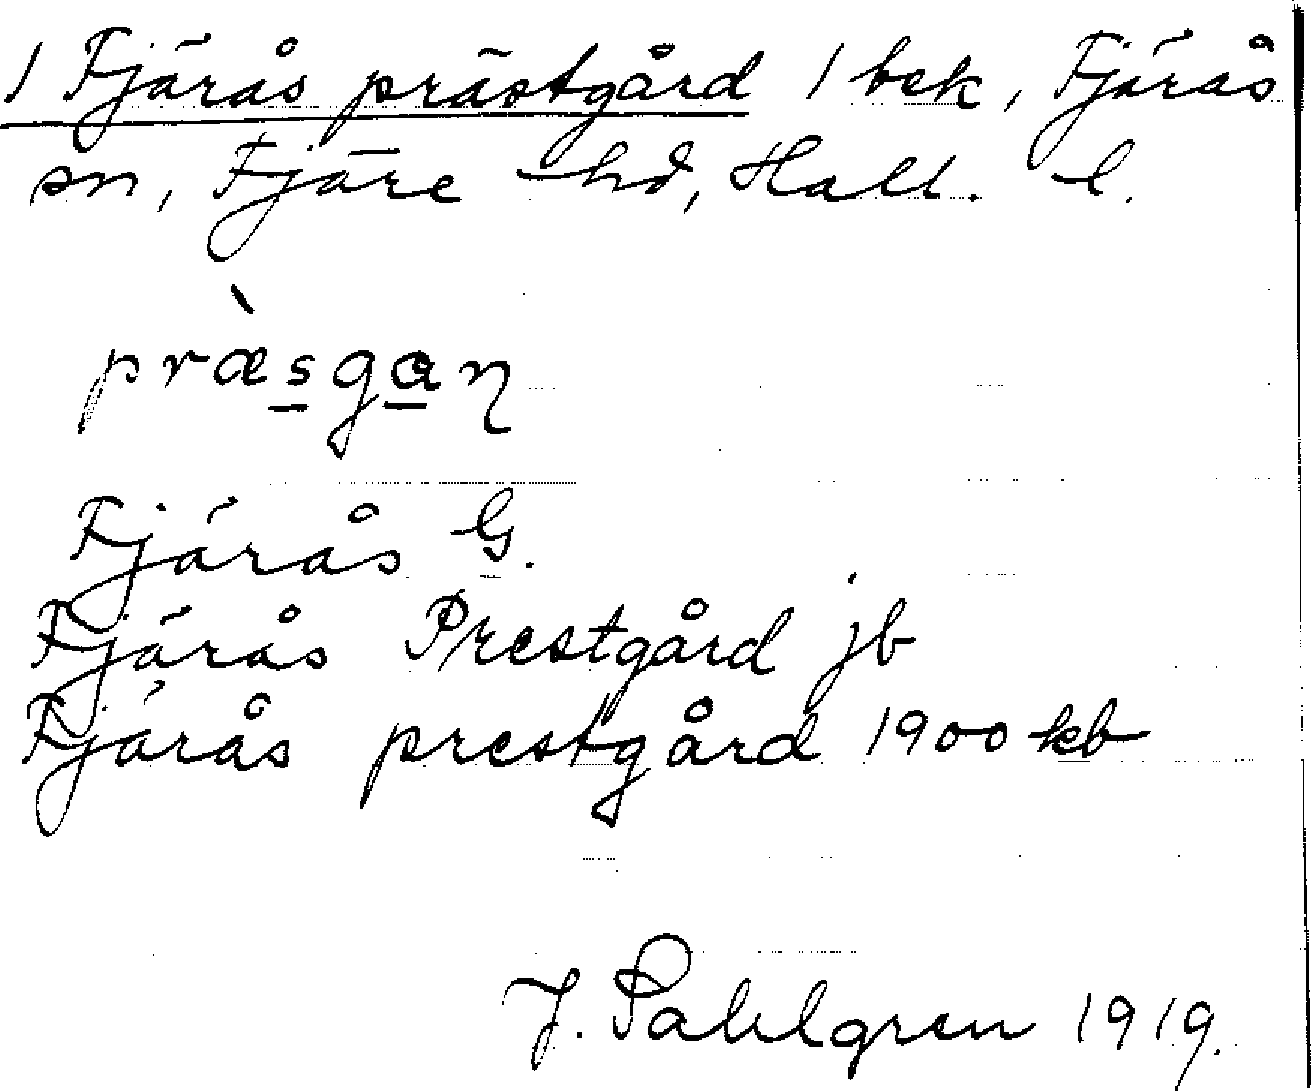 1 Fjärås prästgård 1 bek, Fjärås
sn, Fjäre hd, Hall. l.
præ̀sgaꞃ
Fjärås G.
Fjärås Prestgård jb
Fjärås prestgård 1900 kb
J. Sahlgren 1919.